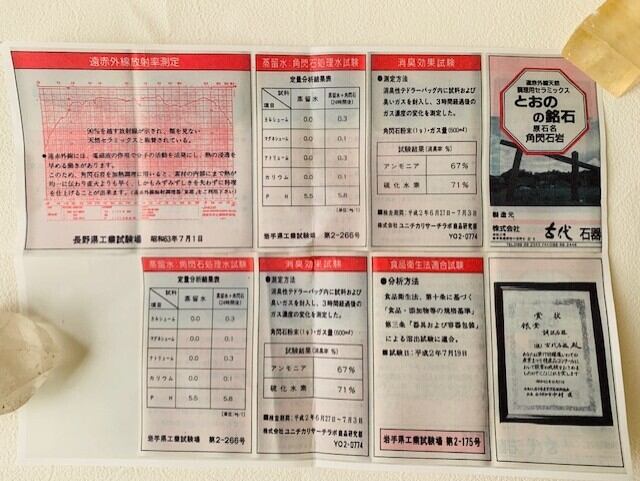 遠赤外線放射率測定
90%を越す放射線が示され、類を見ない
天然セラミックスと称賛されている。
長野県工業試験場 昭和63年7月1日
蒸留水:角閃石処理水試験
定量分析結果表
試料
項目
蒸留水
蒸留水+角閃石
(24時間後)
カルシューム 0.0 0.3
マグネシューム 0.0 0.1
ナトリューム 0.0 0.3
カリウム 0.0 0.1
PH 5.5 5.8
岩手県工業試験場 第2-266号
消臭効果試験
●測定方法
消臭性テドラーバッグ内に試料および
臭いガスを封入し、3時間経過後の
ガス濃度の変化を測定した。
角閃石粉末(1g)・ガス量(600ml)
試験結果(消臭率 %)
アンモニア 67%
硫化水素 71%
■検査期間:平成2年6月27日〜7月3日
株式会社ユニチカリサーチラボ食品研究部
YO2-0774
遠赤外線天然
調理用セラミックス
とおの
の銘石
原石名
角閃石岩
製造元
株式会社 古代石器
蒸留水:角閃石処理水試験
定量分析結果表
試料
項目
蒸留水
蒸留水+角閃石
(24時間後)
カルシューム 0.0 0.3
マグネシューム 0.0 0.1
ナトリューム 0.0 0.3
カリウム 0.0 0.1
PH 5.5 5.8
岩手県工業試験場 第2-266号
消臭効果試験
●測定方法
消臭性テドラーバッグ内に試料および
臭いガスを封入し、3時間経過後の
ガス濃度の変化を測定した。
角閃石粉末(1g)・ガス量(600ml)
試験結果(消臭率 %)
アンモニア 67%
硫化水素 71%
■検査期間:平成2年6月27日〜7月3日
株式会社ユニチカリサーチラボ食品研究部
YO2-0774
食品衛生法適合試験
●分析方法
食品衛生法、第十条に基づく
「食品・添加物等の規格基準」
第三条「器具および容器包装」
による溶出試験に適合。
■試験日:平成2年7月19日
岩手県工業試験場 第2-175号
賞状